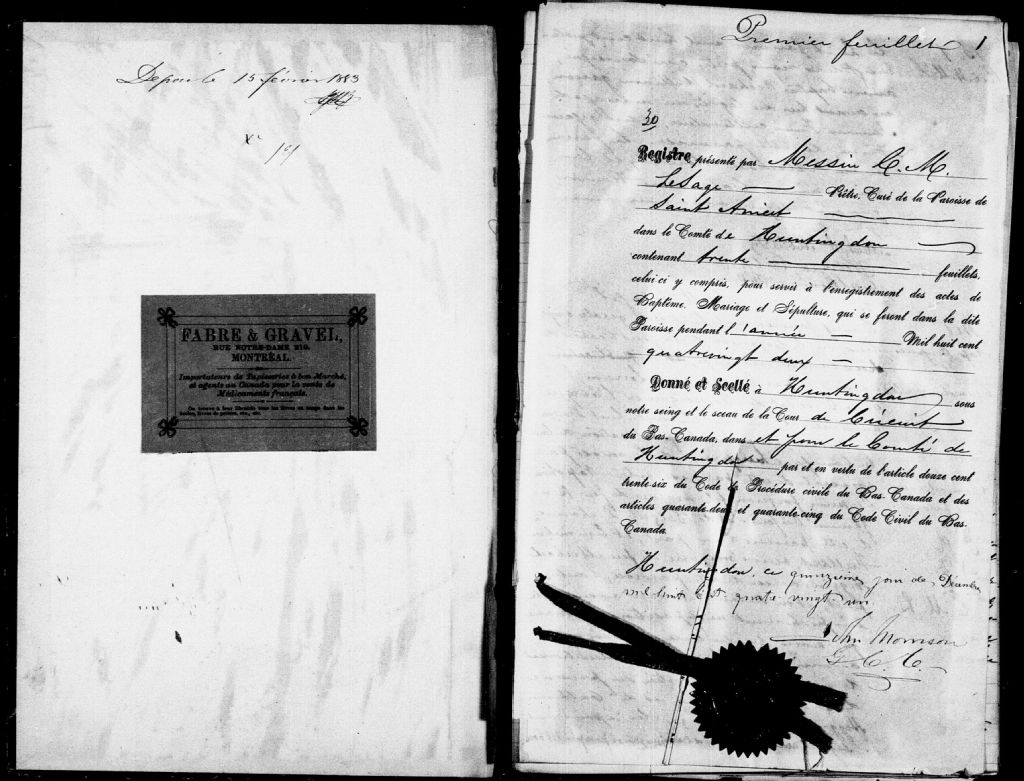 Déposé le 15 février 1883
No
FABRE & GRAVEL,
RUE NOTRE-DAME 219,
MONTRÉAL.
Importateurs de Tapisseries à bon Marché,
et agents au Canada pour la vente de
Médicaments français.
On trouve à leur librairie tous les livres en usage dans les
écoles, livres de prières, etc., etc.
Premier feuillet 1
30
Registre présenté par Messire C. M.
LeSage — Prêtre, Curé de la Paroisse de
Saint Anicet
dans le Comté de Huntingdon
contenant trente feuillets,
celui-ci y compris, pour servir à l'enregistrement des actes de
Baptême, Mariage et Sépulture, qui se feront dans la dite
Paroisse pendant l'année — Mil huit cent
quatrevingt deux —
Donné et Scellé à Huntingdon sous
notre seing et le sceau de la Cour de Circuit
du Bas-Canada, dans et pour le Comté de
Huntingdon par et en vertu de l'article douze cent
trente-six du Code de Procédure civile du Bas-Canada et des
articles quarante-deux et quarante-cinq du Code Civil du Bas-
Canada.
Huntingdon, ce quinzième jour de Décembre
mil huit cent quatre vingt un
John Morrison
G. C. C.